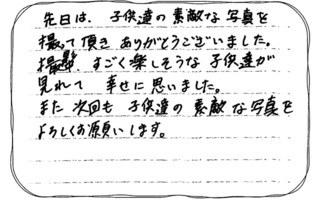 先日は、子供達の素敵な写真を
撮って頂きありがとうございました。
すごく楽しそうな子供達が
見れて 幸せに思いました。
また次回も 子供達の素敵な写真を
よろしくお願いします。